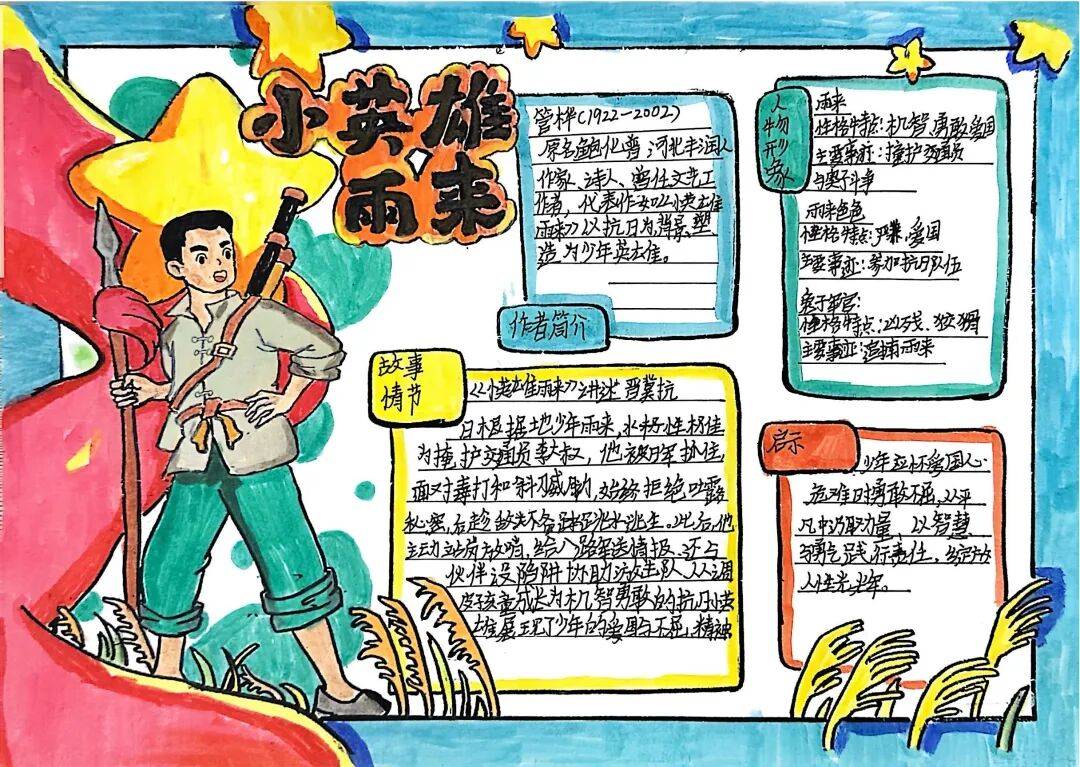 小英雄
雨来
管桦(1922-2002)
原名鲍化普河北丰润人
作家、诗人、曾任文艺工
作者，代表作女《小英雄
雨来》以抗日为背景，塑
造为少年英雄。
作者简介
人物形象
雨来
性格特点:机智,勇敢,爱国
主要事迹:掩护交通员
与鬼子斗争
雨来爸爸
性格特点:严肃、爱国
主要事迹:参加抗日队伍
鬼子军官:
性格特点:凶残、狡猾
主要事迹:追捕雨来
故事
情节
《英雄雨来》讲述晋冀抗
日根据地少年雨来,水性极佳
为掩护交通员李大叔，他被日军抓住,
面对毒打和利诱威胁,始终拒绝吐露
秘密,后趁敌不备跳水逃生。此后,他
主动站岗放哨,给八路军送情报,还与
伙伴设陷阱协助游击队,从调
皮孩童成长为机智勇敢的抗日小英
雄展现了少年的爱国与不屈,精神
启示
少年应怀爱国心,
危难时勇敢不屈,从平
凡中汲取力量，以智慧
与勇气践行责任，绽放
人性光辉。